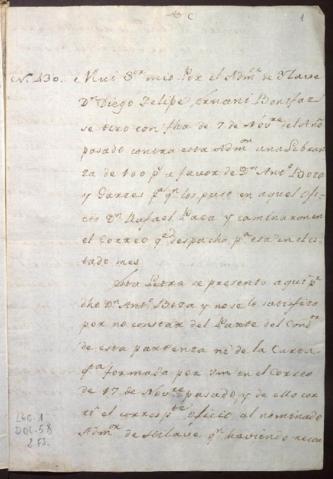 1
N. 430. Mui S.or mio. Por el Adm.or de
D.n Diego Felipe Bonifaz
se tiro con fha de 7 de Nov.re el Año
pasado contra esta Adm.on una Libran
za de 100 p.s a favor de D.n Ant.o Boza
y Garces p.r q.e los puso en aquel Ofi
cio D.n Rafael Daga y caminaron en
el Correo q.e despacho p.a esta en el ci
tado mes.
Esta Letra se presento aqui p.r
dho D.n Ant.o Boza y no se le satisfizo
por no constar del Parte del Cond.or
de esta partenza ni de la Carta
q.ta formada por vm en el Correo
de 17 de Nov.re pasado, y de ello cor
ri el correspo.te oficio al nominado
Adm.or de q.e haviendo recon
LEG. 1
DOC. 58
2 FS.